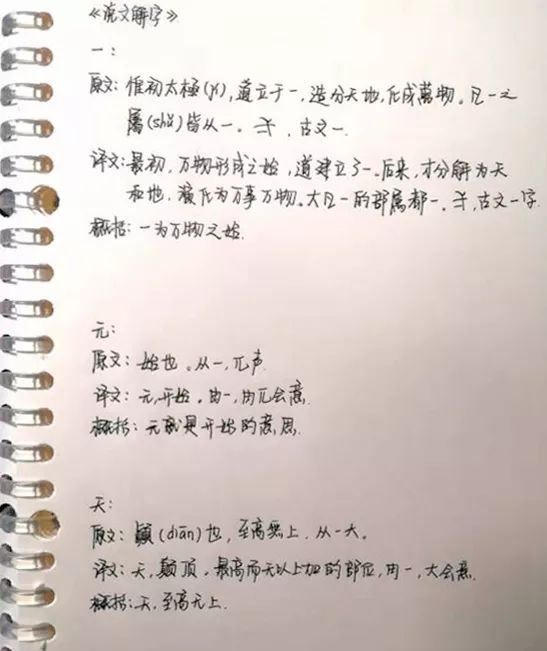 《说文解字》
一：
原文：惟初太極(jí)，道立于一，造分天地，化成萬物。凡一之
屬(shǔ)皆从一。弌，古文一.
译文：最初，万物形成之始，道建立了一。后来，才分解为天
和地，演化为万事万物。大凡一的部属都一。弌，古文一字.
概括：一为万物之始.
元：
原文：始也。从一，兀声.
译文：元，开始。由一，由兀会意.
概括：元就是开始的意思.
天：
原文：顛(diān)也，至高無上，从一大。
译文：天，颠顶。最高而无以上加的部位，由一，大会意.
概括：天，至高无上.